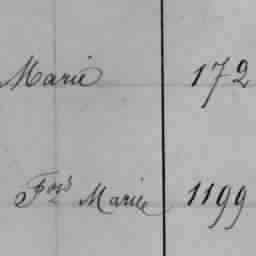 Marie 172
Fois Marie 1199